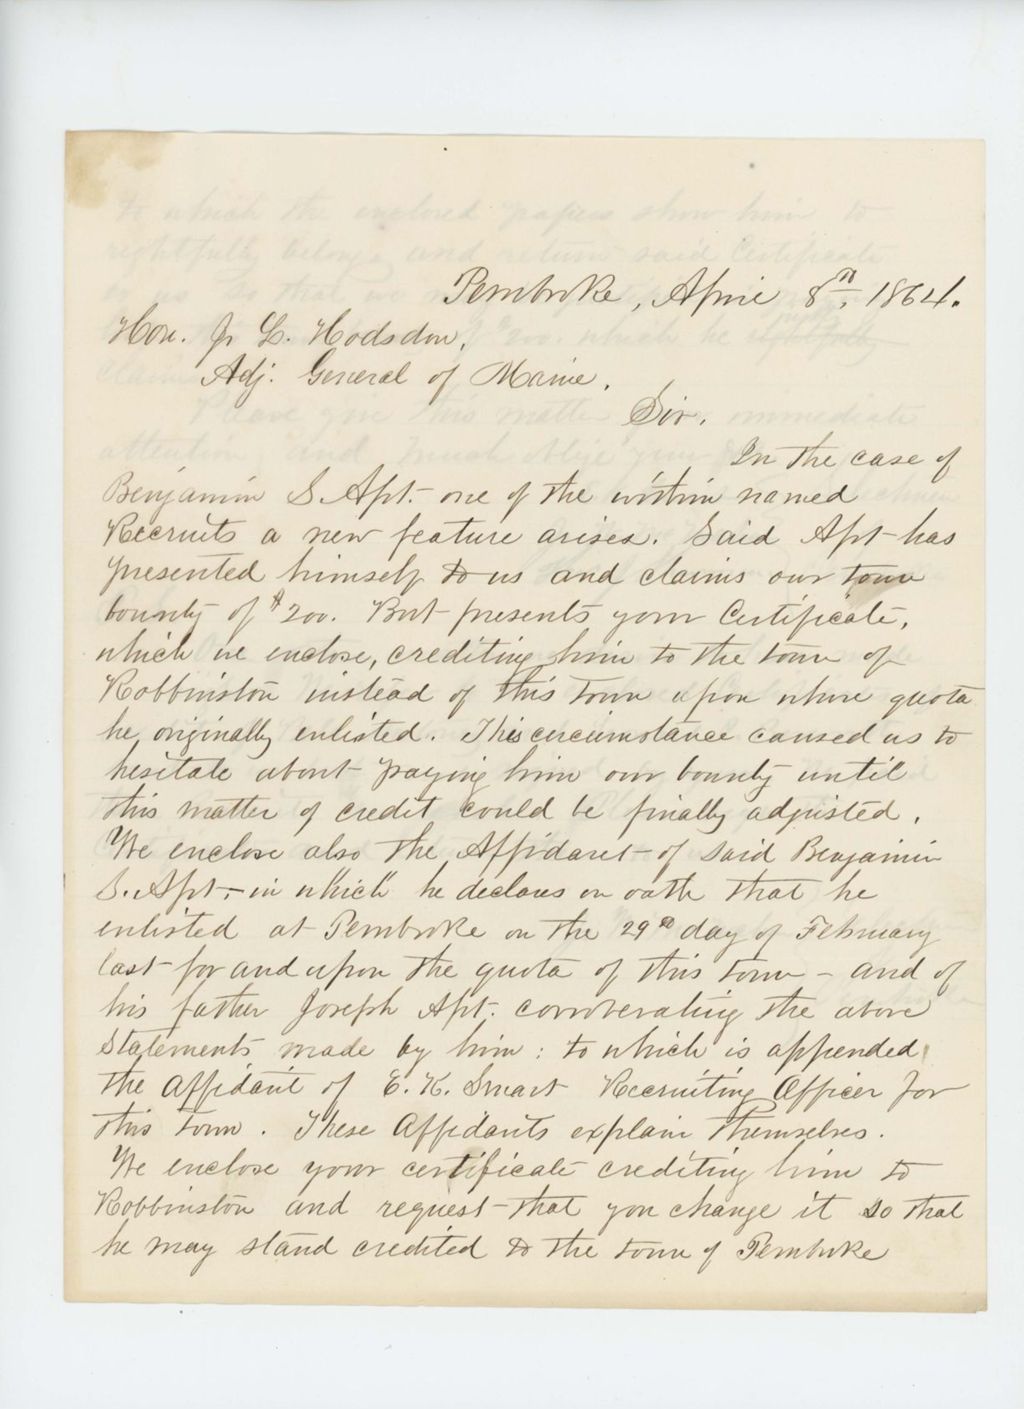 Pembroke, April 8th, 1864.
Hon. J. L. Hodsdon,
Adj. General of Maine.
Sir,
In the case of
Benjamin S. Apt. one of the within named
Recruits a new feature arises. Said Apt has
presented himself to us and claims our town
bounty of $200. But presents your Certificate,
which we enclose, crediting him to the town of
Robbinston instead of this town upon whose quota
he originally enlisted. This circumstance caused us to
hesitate about paying him our bounty until
this matter of credit could be finally adjusted.
We enclose also the Affidavit of said Benjamin
S. Apt, in which he declares on oath that he
enlisted at Pembroke on the 29th day of February
last for and upon the quota of this town - and of
his father Joseph Apt. corroberating the above
statements made by him: to which is appended
the affidavit of E. K. Smart Recruiting Officer for
this town. These Affidavits explain themselves.
We enclose your certificate crediting him to
Robbinston and request that you change it so that
he may stand credited to the town of Pembroke